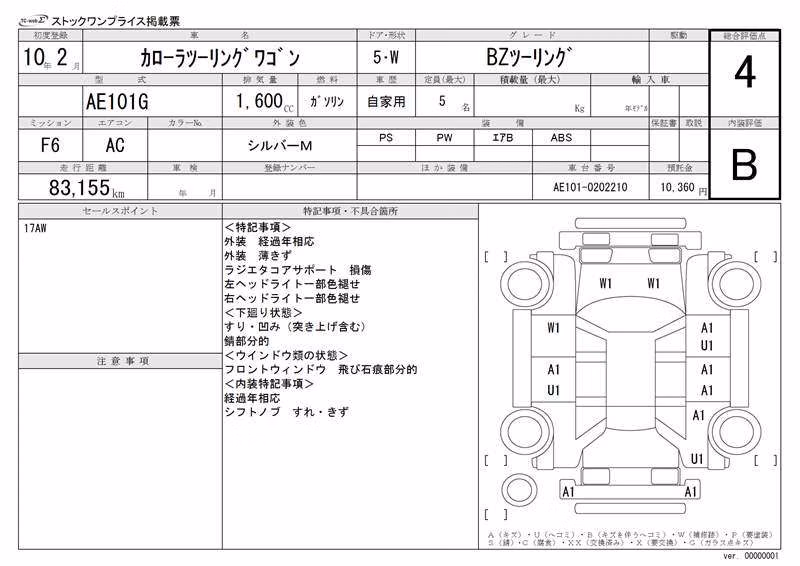 TC-webΣ ストックワンプライス掲載票
初度登録 車名 ドア・形状 グレード 駆動 総合評価点
10年 2月 カローラツーリングワゴン 5・W BZツーリング 4
型式 排気量 燃料 車歴 定員(最大) 積載量(最大) 輸入車
AE101G 1,600CC ガソリン 自家用 5名 Kg 年モデル
ミッション エアコン カラーNo. 外装色 装備 保証書 取説 内装評価
F6 AC シルバーM PS PW エアB ABS B
走行距離 車検 登録ナンバー ほか装備 車台番号 預託金
83,155km 年 月 AE101-0202210 10,360円
セールスポイント 特記事項・不具合箇所
17AW
注意事項
<特記事項>
外装 経過年相応
外装 薄きず
ラジエタコアサポート 損傷
左ヘッドライト一部色褪せ
右ヘッドライト一部色褪せ
<下廻り状態>
すり・凹み(突き上げ含む)
錆部分的
<ウインドウ類の状態>
フロントウィンドウ 飛び石痕部分的
<内装特記事項>
経過年相応
シフトノブ すれ・きず
[ ] [ ]
W1 W1
W1 A1
U1
A1 A1
U1 U1
A1
[ ] U1 [ ]
A1 A1
[ ]
A(キズ)・U(ヘコミ)・B(キズを伴うヘコミ)・W(補修跡)・P(要塗装)
S(錆)・C(腐食)・XX(交換済み)・X(要交換)・G(ガラス点キズ)
ver. 00000001